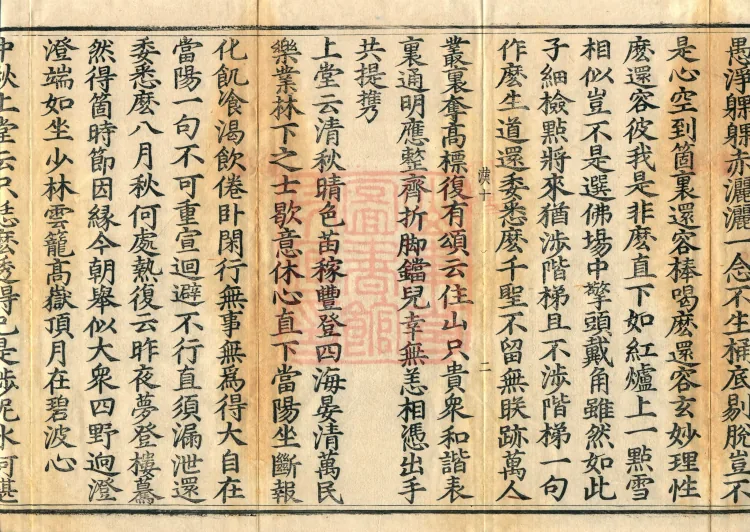 愚淨躶躶赤灑灑一念不生桶底剔脫豈不
是心空到箇裏還容棒喝麽還容玄妙理性
麽還容彼我是非麽直下如紅爐上一點雪
相似豈不是選佛場中擎頭戴角雖然如此
子細檢點將來猶涉階梯且不涉階梯一句
作麽生道還委悉麽千聖不留無朕跡萬人
叢裏奪髙標復有頌云住山只貴衆和諧表
裏通明應整齊折脚鐺兒幸無恙相憑出手
共提携
上堂云清秋晴色苗稼豐登四海晏清萬民
樂業林下之士歇意休心直下當陽坐斷報
化飢飡渴飲倦卧閑行無事無爲得大自在
當陽一句不可重宣迴避不行直須漏泄還
委悉麽八月秋何處熱復云昨夜夢登樓驀
然得箇時節因緣今朝舉似大衆四野逈澄
澄端如坐少林雲籠髙嶽頂月在碧波心
中秋上堂云只恁麽透得已是涉泥水何堪
二